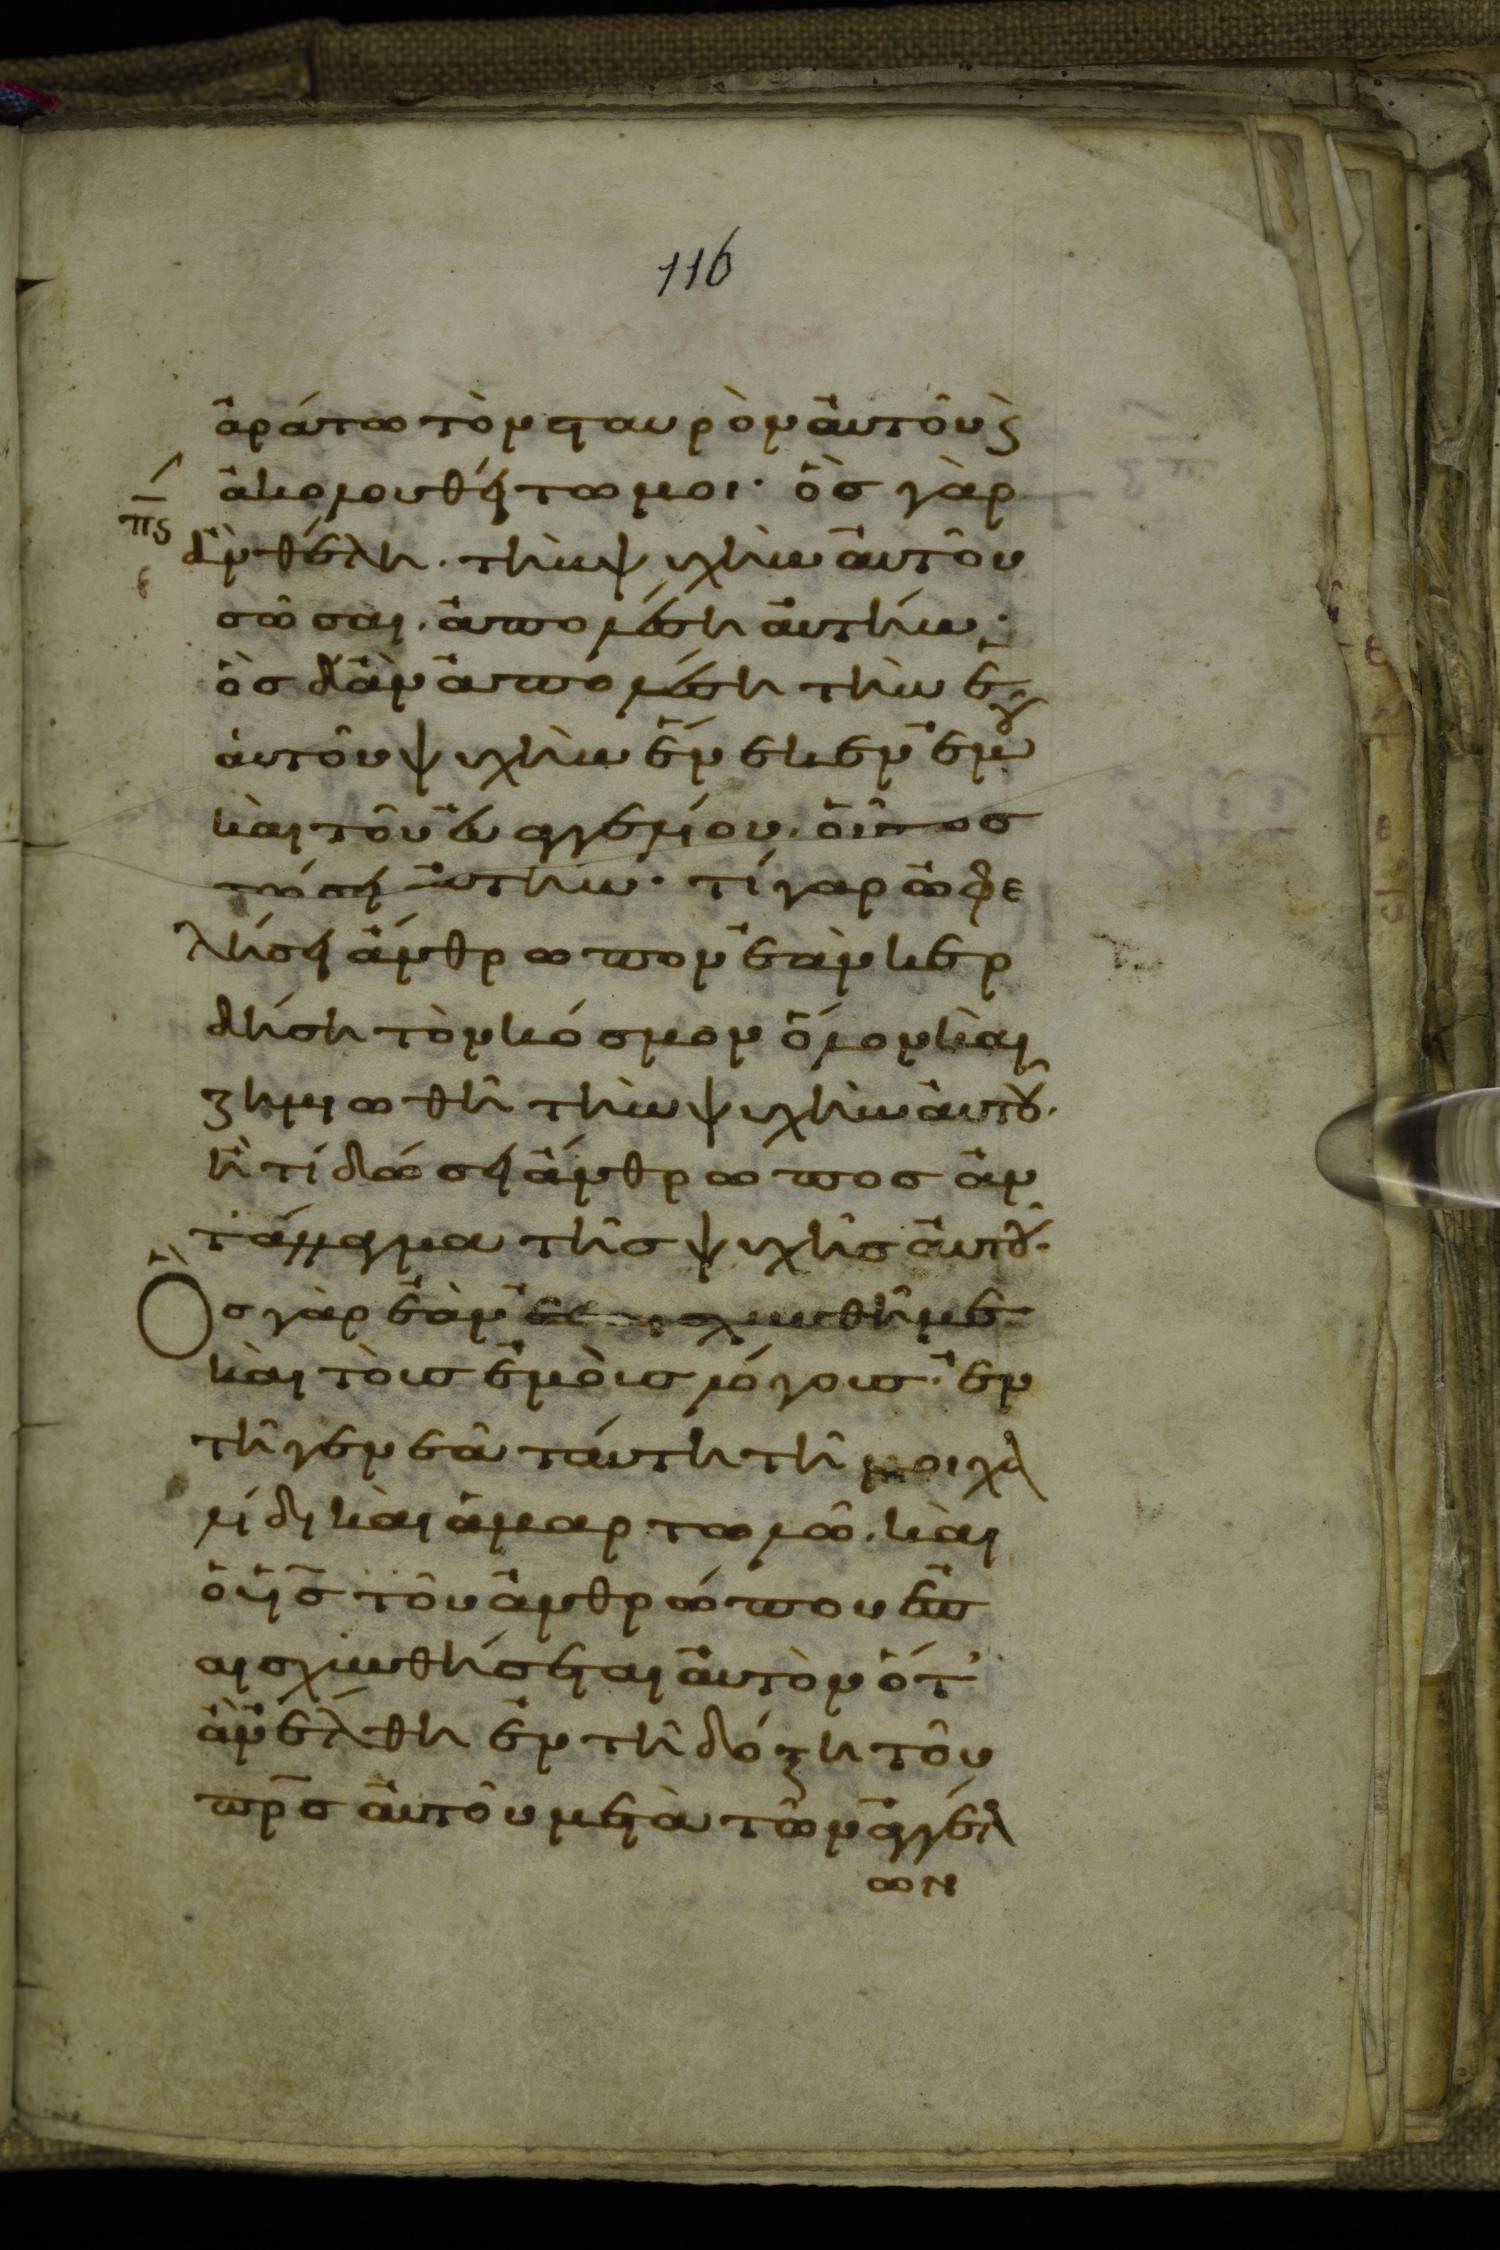 116
ἀράτω τὸν σταυρὸν ἀυτοῦ ϗ
ἀκολουθήτω μοι· ὃς γὰρ
πϛ
ἂν θέλη. τὴν ψυχὴν ἀυτοῦ
σῶσαι. ἀπολέση ἀυτήν·
ὃς δἂν ἀπολέση τὴν ἑ
ἀυτοῦ ψυχὴν ἕνεκεν ἐμοῦ
καὶ τοῦ ἐυαγγελίου. οὗτος
σώσει ἀυτήν· τί γαρ ὠφε
λήσει ἄνθρωπον ἐὰν κερ
δήση τὸν κόσμον ὅλον καὶ
ζημιωθῆ τὴν ψυχὴν ἀυτοῦ.
ἢ τί δώσει ἄνθρωπος ἀν
τάλλαγμα τῆς ψυχῆς ἀυτοῦ.
Ὃς γὰρ ἐὰν ἐπαισχυνθῆ με
καὶ τοὺς ἐμοὺς λόγους. ἐν
τῆ γενεᾶ ταύτη τῆ μοιχα
λίδι καὶ ἁμαρτωλῶ. καὶ
ὁ υἱὸς τοῦ ἀνθρώπου ἐπ
αισχυνθήσεται ἀυτὸν ὅτ'
ἂν ἔλθη ἐν τῆ δόξη τοῦ
πρ̅ς ἀυτοῦ μετὰ τῶν ἀγγέλ
ων